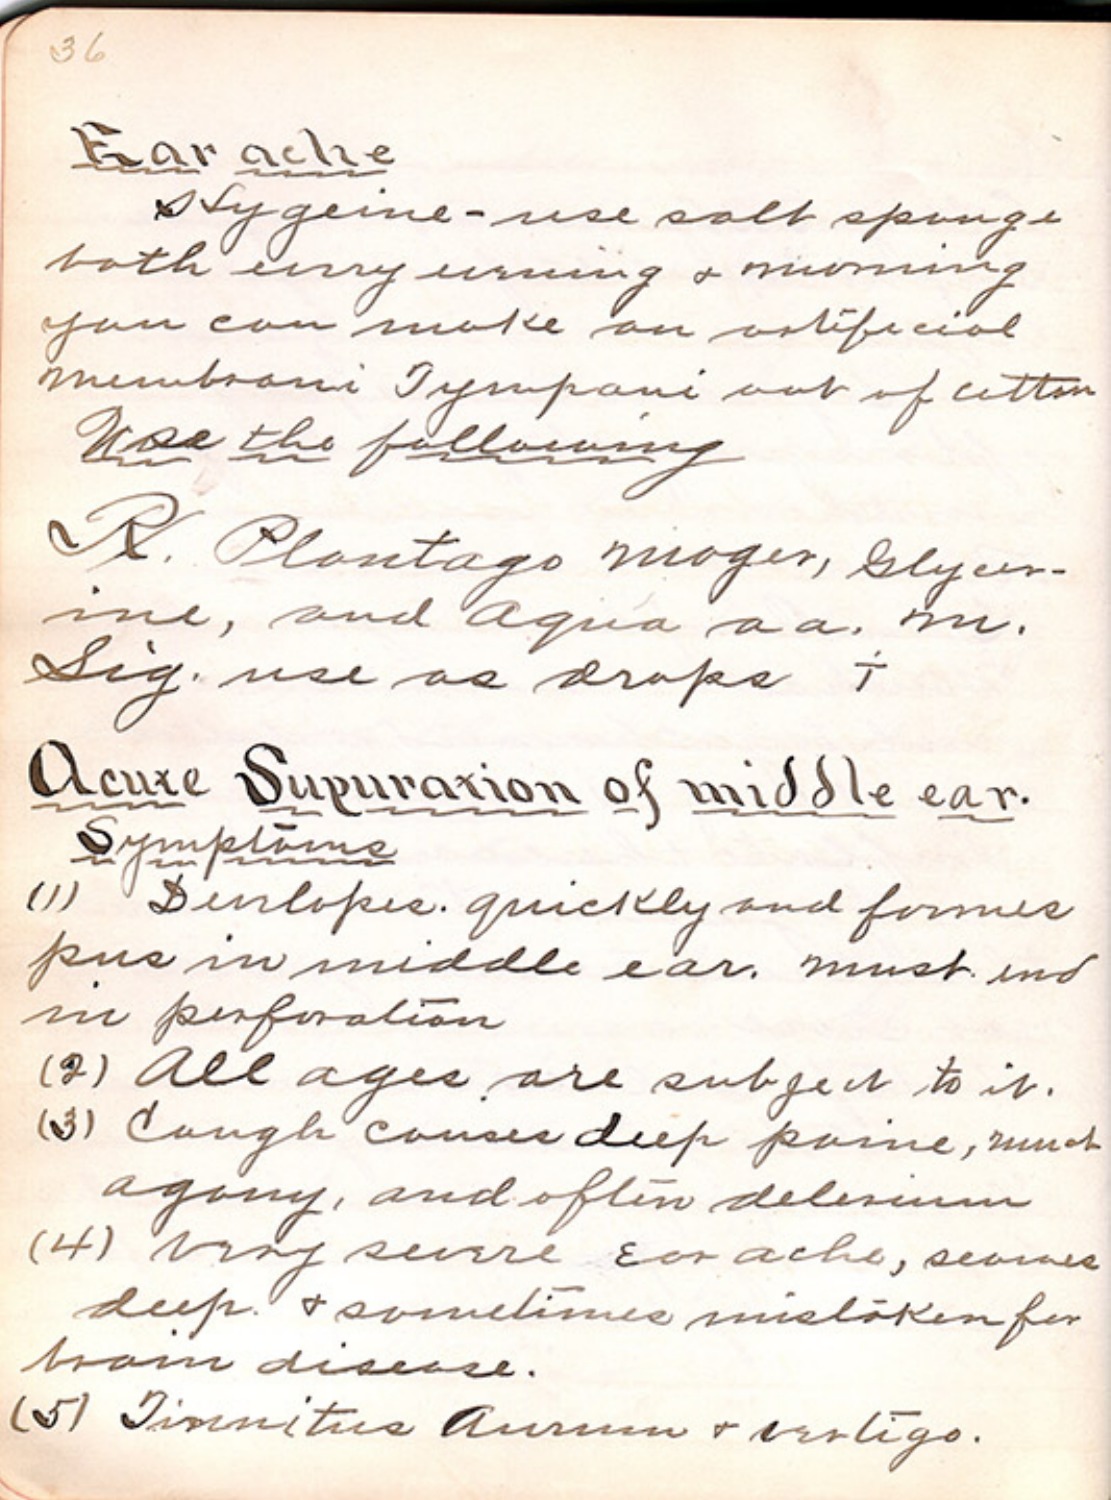 36
Ear ache
Hygeine - use salt sponge
bath every evening & morning
you can make an artificial
membrani Tympani out of cotton
Use the following
Rx. Plantago Moger, Glycer-
ine, and Aqua aa. M.
Sig. use as drops †
Acute Supuration of middle ear.
Symptoms
(1) Develope. quickly and formes
pus in middle ear. Must end
in perforation
(2) All ages are subject to it.
(3) Cough causes deep paine, much
agony, and often delerium
(4) Very severe Ear ache, seames
deep. & sometimes mistaken for
brain disease.
(5) Tinnitus Aurum & vertigo.